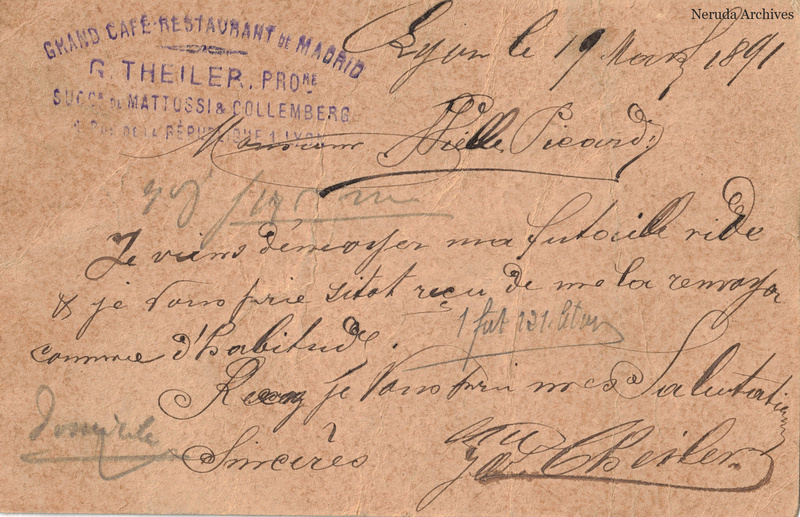 Neruda Archives
GRAND CAFÉ-RESTAURANT DE MADRID
G. THEILER, PRORE
SUCCR DE MATTOSSI & COLLEMBERG
RUE DE LA RÉPUBLIQUE LYON
Lyon le 19 Mars 1891
Monsieur Vielle Picard
Je viens d'envoyer ma futaille vide
& je vous prie sitot reçu de me la renvoyer
comme d'habitude.
1 fut 131 litres
Recevez je vous prie mes Salutations
domicile
Sincères
Theiler